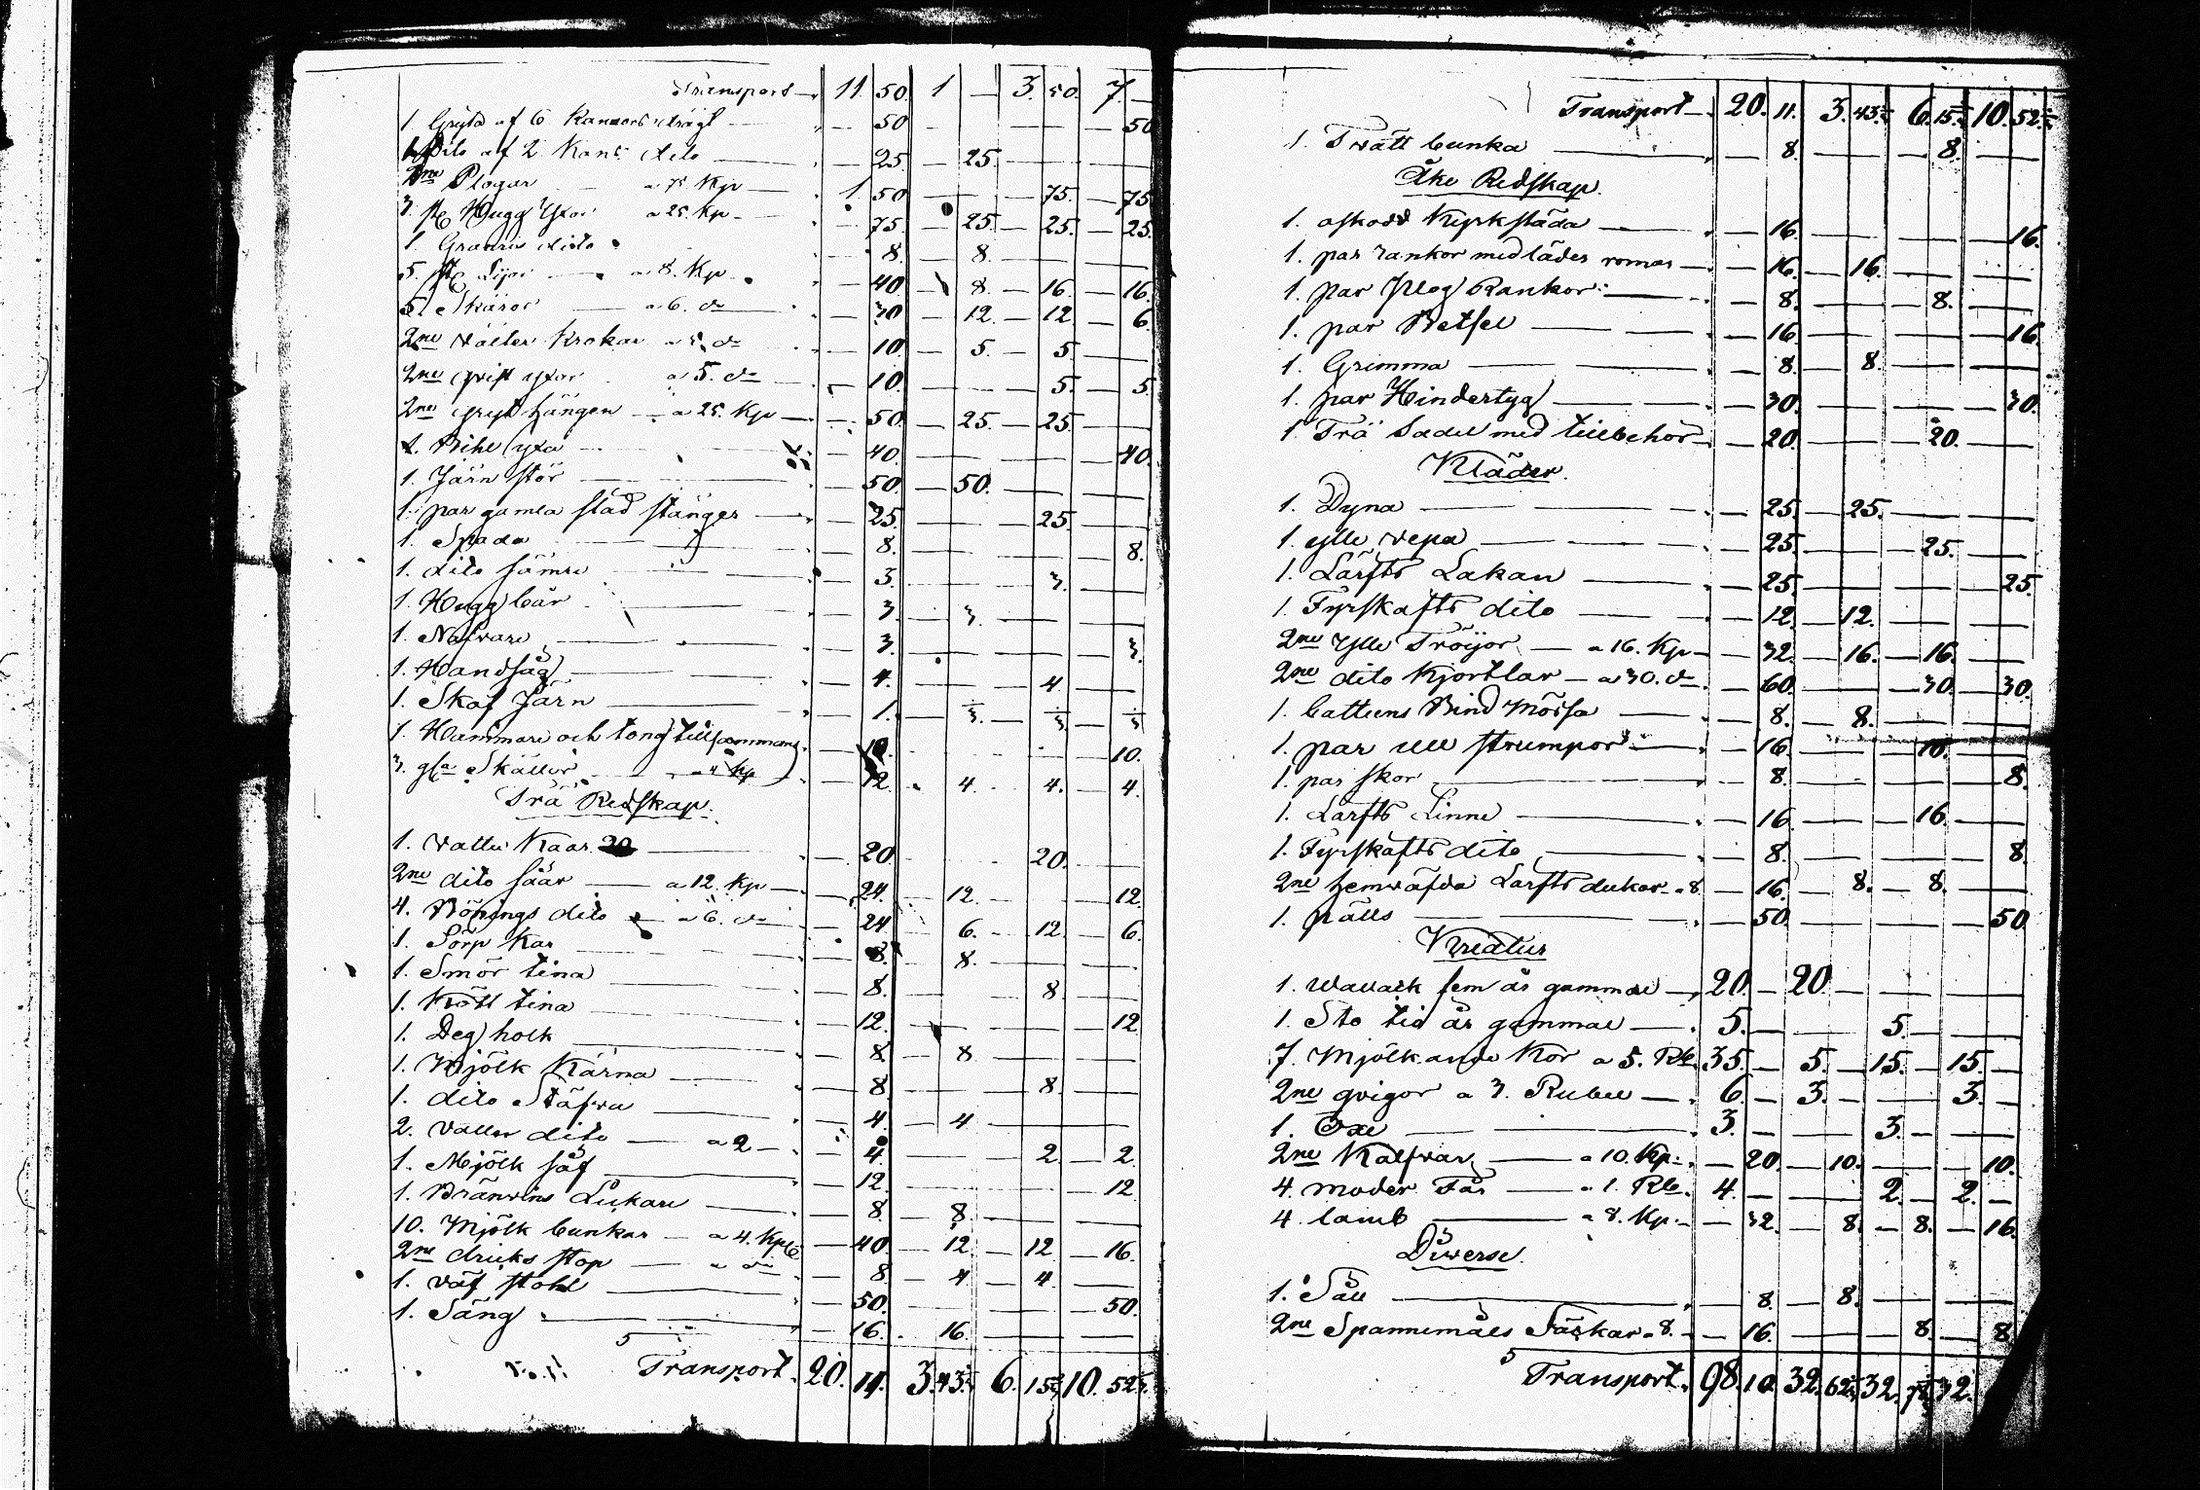 Transport 11 50. 1 — 3. 50. 7. —
1 Gryta af 6 Kannors drägt — 50 — — — — 50
1 Dito af 2 Kans dito — 25 — 25. — — — —
2ne Plogar a 75 Kp — 1. 50 — — — 75. — 75
3. st Hugg Yxor a 25. Kp — 75 — 25. — 25. — 25.
1. dito — 8. — 8.
5. st Lijor — a 8. Kp — 40 — 8. — 16. — 16.
5. Skäror — a 6. do — 30 — 12. — 12. — 6.
2ne Krokar a 5. do — 10. — 5. — 5. — —
2ne yxor a 5. do — 10. — — — 5. — 5.
2ne gryt hängen — a 25. Kp — 50. — 25. — 25. — —
1. Bihl yxa — 40. — — — — 40.
1. Järn stör — 50. — 50. — — — —
1. par gamla städ stänger — 25. — — — 25. — —
1. Spada — 8. — — — — 8.
1. dito sämre — 3. — — — 3. — —
1. Hugg — 3. — 3. — — — —
1. Nafvare — 3. — — — — 3.
1. Handsåg — 4. — — — 4. — —
1. Skaf Järn — 1. — 1/3. — 1/3. — 1/3
1. Hammare och tong tillsammans — 10. — — — — 10.
3. gla Skällor a 4 Kp — 12. — 4. — 4. — 4.
Trä Redskap.
1. Vattu Kaar — 20. — — 20. — —
2ne dito såår — a 12. Kp — 24. — 12. — — — 12.
4. dito — a 6. do — 24 — 6. — 12. — 6.
1. Sörp Kar — 8. — 8. — — — —
1. Smör tina — 8. — — — 8. — —
1. Kött tina — 12. — — — — 12.
1. Deg holk — 8. — 8. — — — —
1. Mjölk Kärna — 8. — — — 8. — —
1. dito Stäfva — 4. — 4 — — — —
2. Vattu dito — a 2 — 4. — — — 2. — 2.
1. Mjölk såf — 12. — — — — 12.
1. Bränvins — 8. — 8. — — — —
10. Mjölk bunkar — a 4. Kp — 40. — 12. — 12 — 16.
2ne dricks stop — a do — 8. — 4 — 4. — —
1. väf stohl — 50. — — — — 50.
1. Säng — 16. — 16. — — — —
Transport. 20. 11. 3. 43 1/3. 6. 15 1/3. 10. 52 1/3.
Transport — 20. 11. 3. 43 1/3. 6. 15 1/3. 10. 52 1/3
1. Tvätt bunka — 8. — — — 8. — —
Åke Redskap.
1. oskodd Kyrksläda — 16. — — — — 16.
1. par rankor med läder — 16. — 16. — — — —
1. par Plog Rankor — 8. — — — 8. — —
1. par Betsel — 16. — — — — 16.
1. Grimma — 8. — 8. — — — —
1. par Hindertyg — 30. — — — — 30.
1. Trä Sadel med tillbehör — 20. — — — 20. — —
Kläder.
1. Dyna — 25. — 25. — — — —
1. ylle vepa — 25. — — — 25. — —
1. Lärfts Lakan — 25. — — — — 25
1. Fyrskafts dito — 12. — 12. — — — —
2ne Ylle Tröijor — a 16. Kp — 32. — 16. — 16. — —
2ne dito Kjortlar — a 30. do — 60. — — — 30. — 30.
1. Cattuns Bind Mössa — 8. — 8. — — — —
1. par ull strumpor — 16. — — — 16. — —
1. par skor — 8. — — — — 8.
1. Larfts Linne — 16. — — — 16. — —
1. Fyrskafts dito — 8. — — — — 8.
2ne hemväfda Larfts dukar a 8. — 16. — 8. — 8. — —
1. pälls — 50. — — — — 50.
Kreatur
1. Wallack fem år gammal — 20. — 20. — — — —
1. Sto tio år gammal — 5. — — — 5. — — —
7. Mjölkande Kor a 5. Rbl 35. — 5. — 15. — 15. —
2ne qvigor a 3. Rubel — 6. — 3. — — — 3. —
1. Oxe — 3. — — — 3. — — —
2ne Kalfvar — a 10. Kp. — 20. — 10. — — — 10.
4. moder Får — a 1. Rbl. 4. — — — 2. — 2. —
4. lamb — a 8. Kp. — 32. — 8. — 8. — 16.
Diverse.
1. Såll — 8. — 8. — — — —
2ne Spannemåls Säckar a 8. — 16. — — — 8. — 8.
Transport. 98. 10. 32. 62 32. 32.